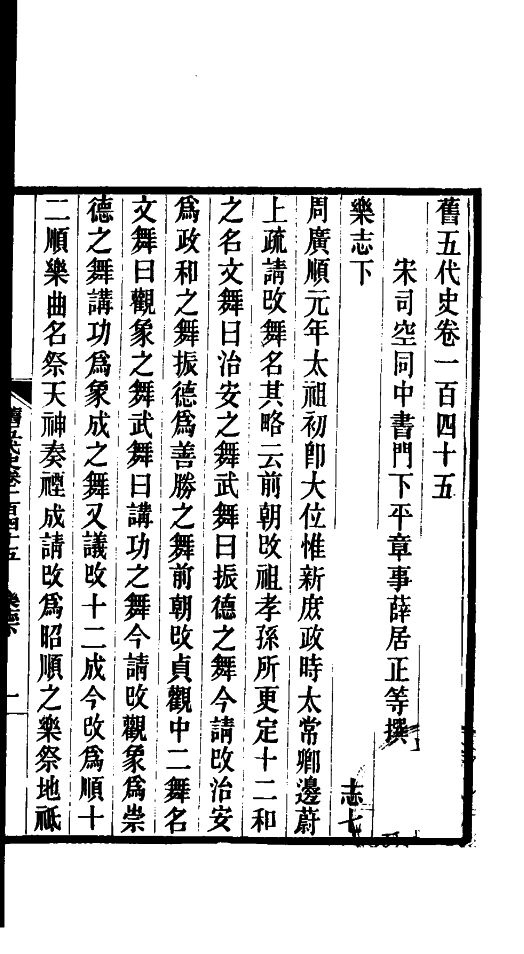 舊五代史卷一百四十五
宋司空同中書門下平章事薛居正等撰
樂志下　志七
周廣順元年太祖初卽大位惟新庶政時太常卿邊蔚
上疏請改舞名其略云前朝改祖孝孫所更定十二和
之名文舞曰治安之舞武舞曰振德之舞今請改治安
爲政和之舞振德爲善勝之舞前朝改貞觀中二舞名
文舞曰觀象之舞武舞曰講功之舞今請改觀象爲崇
德之舞講功爲象成之舞又議改十二成今改爲順十
二順樂曲名祭天神奏禋成請改爲昭順之樂祭地祇
舊五代史卷一百四十五　樂志下　一